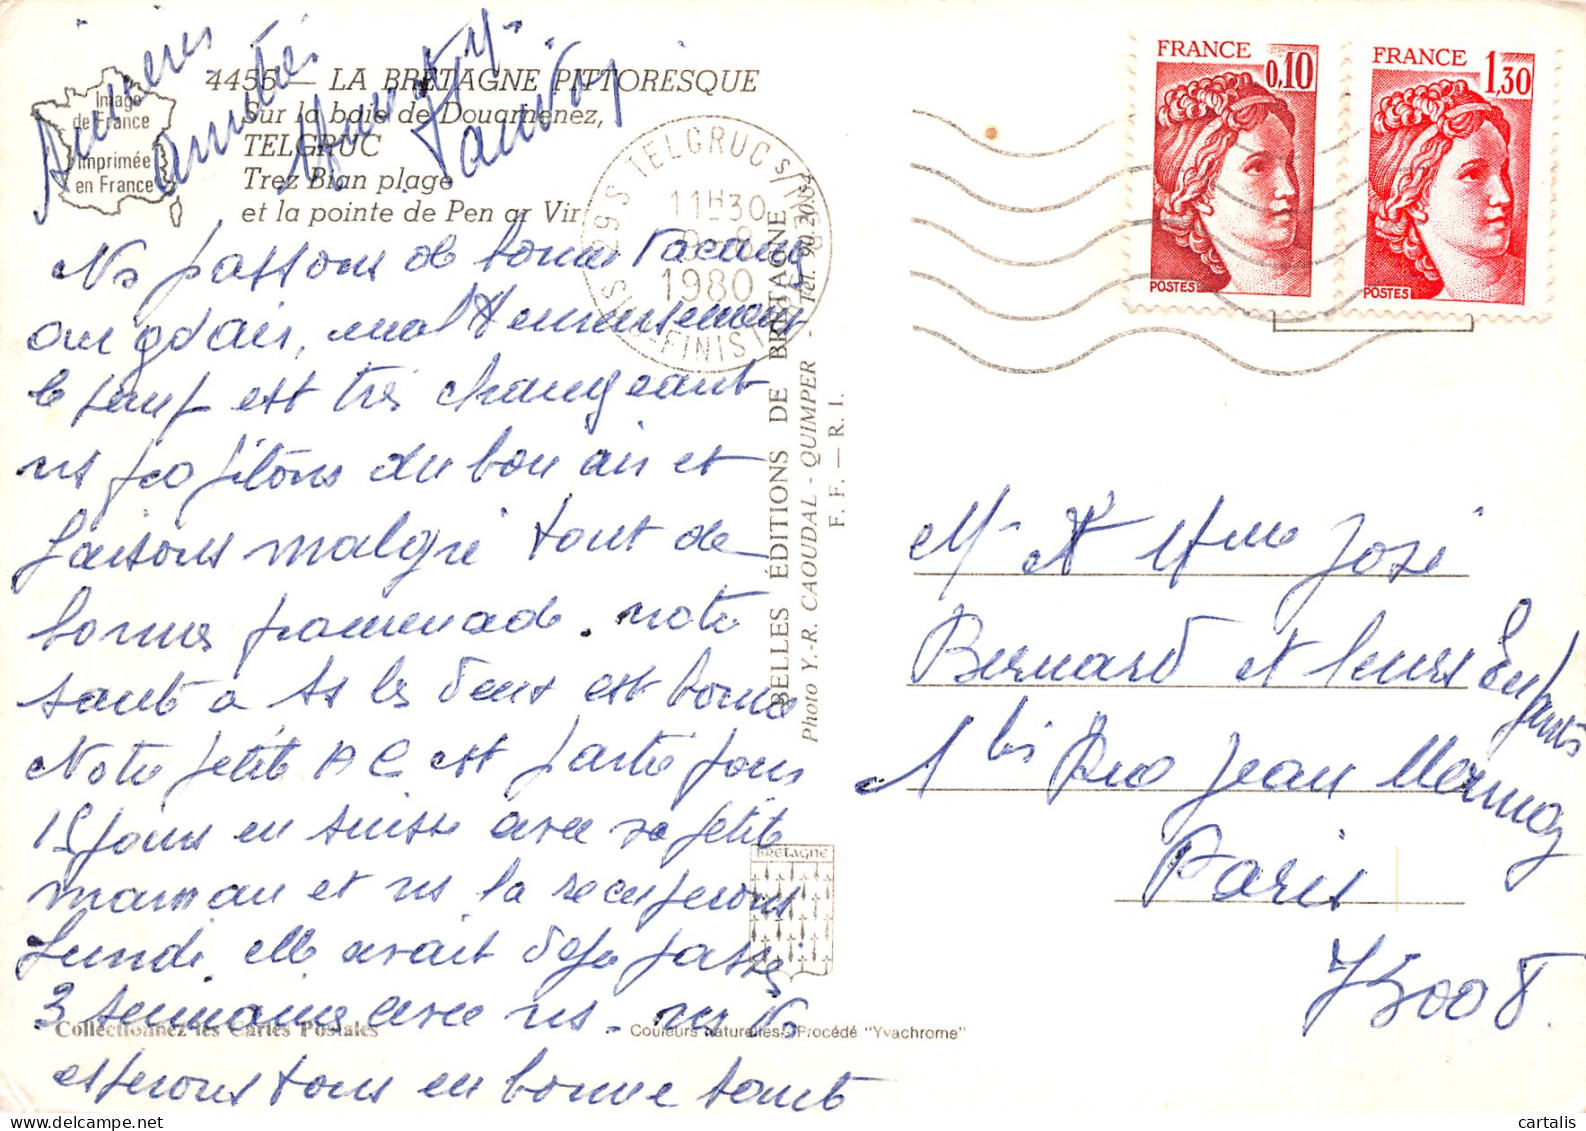 4455 — LA BRETAGNE PITTORESQUE
Sur la baie de Douarnenez,
TELGRUC
Trez Bian plage
et la pointe de Pen ar Vir
Image
de France
Imprimée
en France
amitiés
Ns passons de bonnes vacances
malheureusement
le temps est très changeant
ns profitons du bon air et
faisons malgré tout de
bonnes promenade. notre
santé a ts les deux est bonne
Notre petite A C est partie pour
15 jours en suisse avec sa petite
maman et ns la recuperons
Lundi. elle avait déjà passé
3 semaines avec ns - ns vs
esperons tous en bonne santé
TELGRUC S/MER
11H30
1980
29 S FINISTERE
BELLES ÉDITIONS DE BRETAGNE
Photo Y.-R. CAOUDAL - QUIMPER - Tél. 90.20.54
F. F. — R. I.
BRETAGNE
Collectionnez les Cartes Postales
Couleurs naturelles - Procédé "Yvachrome"
FRANCE
0,10
POSTES
FRANCE
1,30
POSTES
Mr et Mme José
Bernard et leurs Enfants
1 bis Rue Jean Mermoz
Paris
75008.
cartalis
delcampe.net